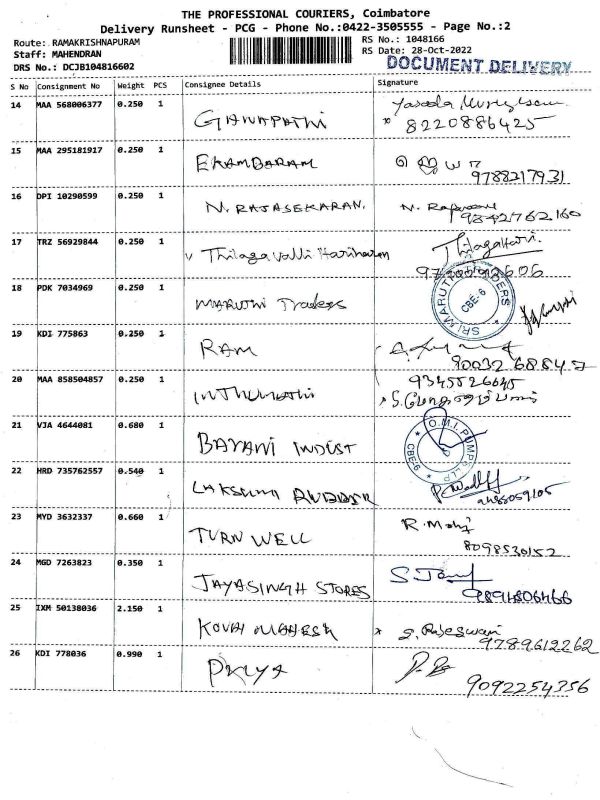 THE PROFESSIONAL COURIERS, Coimbatore
Delivery Runsheet - PCG - Phone No.:0422-3505555 - Page No.:2
Route: RAMAKRISHNAPURAM
RS No.: 1048166
Staff: MAHENDRAN
RS Date: 28-Oct-2022
DRS No.: DCJB104816602
DOCUMENT DELIVERY
S No Consignment No Weight PCS Consignee Details Signature
14 MAA 568006377 0.250 1 GANAPATHI
8220886425
15 MAA 295181917 0.250 1 EKAMBARAM
9788217931
16 DPI 10290599 0.250 1 N. RAJASEKARAN.
9842762160
17 TRZ 56929844 0.250 1 Thilagavalli Hariharan
18 PDK 7034969 0.250 1 MARUTHI Traders
SRI MARUTHI TRADERS
CBE-6
19 KDI 775863 0.250 1 RAM
20 MAA 858504857 0.250 1 INTHUMATHI
9345526645
21 VJA 4644081 0.680 1 BAVANI INDUST
O.M.I. PUMPS LLP
CBE-6
22 HRD 735762557 0.540 1 LAKSHMI RUBBER
23 MYD 3632337 0.660 1 TURN WELL R. Mohj
8098530152
24 MGD 7263823 0.350 1 JAYASINGH STORES
9894806466
25 IXM 50138036 2.150 1 KOVAI MAHESH S. Rajeswari
9789612262
26 KDI 778036 0.990 1 PRIYA
9092254356